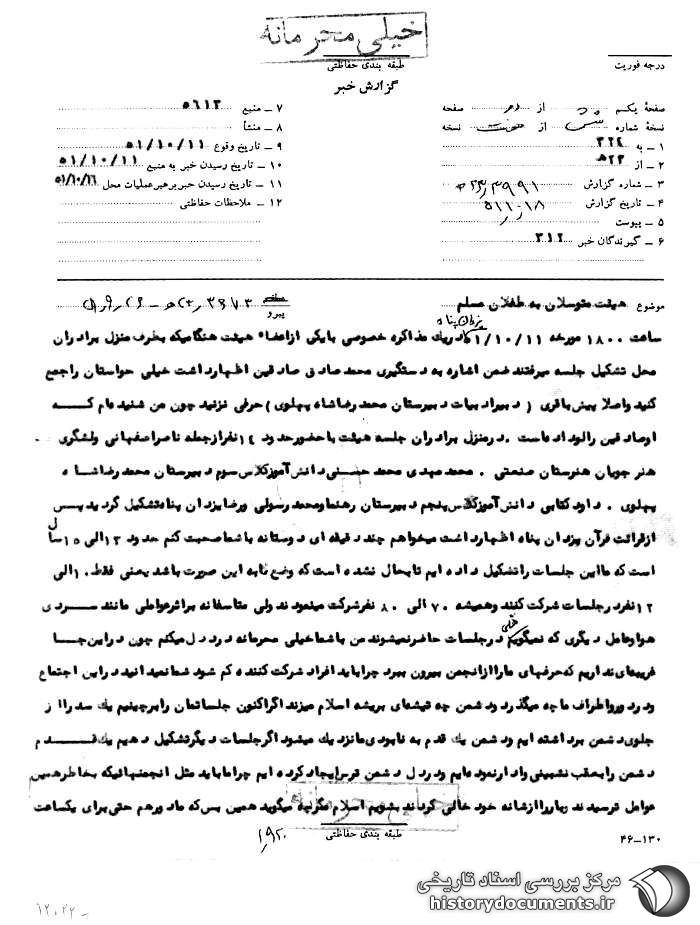 خیلی محرمانه
طبقه بندی حفاظتی
گزارش خبر
درجه فوریت
صفحهٔ یکم از صفحه
نسخهٔ شماره از نسخه
۱ ــ به ۳۲۴
۲ ــ از ۲۳ه‍
۳ ــ شماره گزارش
۴ ــ تاریخ گزارش
۵ ــ پیوست
۶ ــ گیرندگان خبر ۳۱۲
۷ ــ منبع ۵۶۱۳
۸ ــ منشأ
۹ ــ تاریخ وقوع ۵۱/۱۰/۱۱
۱۰ ــ تاریخ رسیدن خبر به منبع ۵۱/۱۰/۱۱
۱۱ ــ تاریخ رسیدن خبر برهبر عملیات محل ۵۱/۱۰/۱۶
۱۲ ــ ملاحظات حفاظتی
موضوع هیئت متوسلان به طفلان مسلم
پیرو
یزدان پناه
ساعت ۱۸۰۰ مورخه ۵۱/۱۰/۱۱ دریك مذاکره خصوصی بایکی ازاعضاء هیئت هنگامیکه بطرف منزل برادران
محل تشکیل جلسه میرفتند ضمن اشاره به دستگیری محمد صادق صادقین اظهارداشت خیلی حواستان راجمع
کنید واصلا پیش باقری ( دبیرادبیات دبیرستان محمدرضاشاه پهلوی ) حرفی نزنید چون من شنیده ام کـــه
اوصادقین رالوداده است . درمنزل برادران جلسه هیئت باحضورحدود ۱۴ نفرازجمله ناصراصفهانی ولشگری .
هنرجویان هنرستان صنعتی . محمدمهدی محمدحسنی دانش آموزکلاس سوم دبیرستان محمدرضاشـاه
پهلوی . داودکتابی دانش آموزکلاس پنجم دبیرستان رهنما ومحمدرسولی ورضایزدان پناه تشکیل گردید پس
ازقرائت قرآن یزدان پناه اظهارداشت میخواهم چنددقیقه ای دوستانه باشماصحبت کنم حدود ۱۳ الی ۱۵ سال
است که مااین جلسات راتشکیل داده ایم تابحال نشده است که وضع ما به این صورت باشد یعنی فقط ۱۰ الی
۱۲ نفردرجلسات شرکت کنند وهمیشه ۷۰ الی ۸۰ نفرشرکت مینمودند ولی متاسفانه براثرعواملی مانند سـردی
هواوعامل دیگری که نمیگویم درجلسات حاضرنمیشوند من باشماخیلی محرمانه درددل میکنم چون دراین جـــا
غریبه ای نداریم که حرفهای مارا ازانجمن بیرون ببرد چراباید افراد شرکت کننده کم شود شمانمیدانید دراین اجتماع
ودردورواطراف ماچه میگذرد ودشمن چه تیشه ای بریشه اسلام میزند اگراکنون جلساتمان رابرچینیم یك سدرا از
جلوی دشمن برداشته ایم ودشمن یك قدم به نابودی مانزدیك میشود اگرجلسات دیگرتشکیل دهیم یك قـــدم
دشمن رابعقب نشینی وادارنموده ایم ودردل دشمن ترس ایجادکرده ایم چراماباید مثل انجمنهائیکه بخاطرهمین
عوامل ترسیدند وباررا ازشانه خود خالی کردند بشویم اسلام مگرچه میگوید همین بس که مادورهم حتی برای یکساعت
خیلی محرمانه
طبقه بندی حفاظتی
۴۶ــ۱۳۰
مرکز بررسی اسناد تاریخی
historydocuments.ir